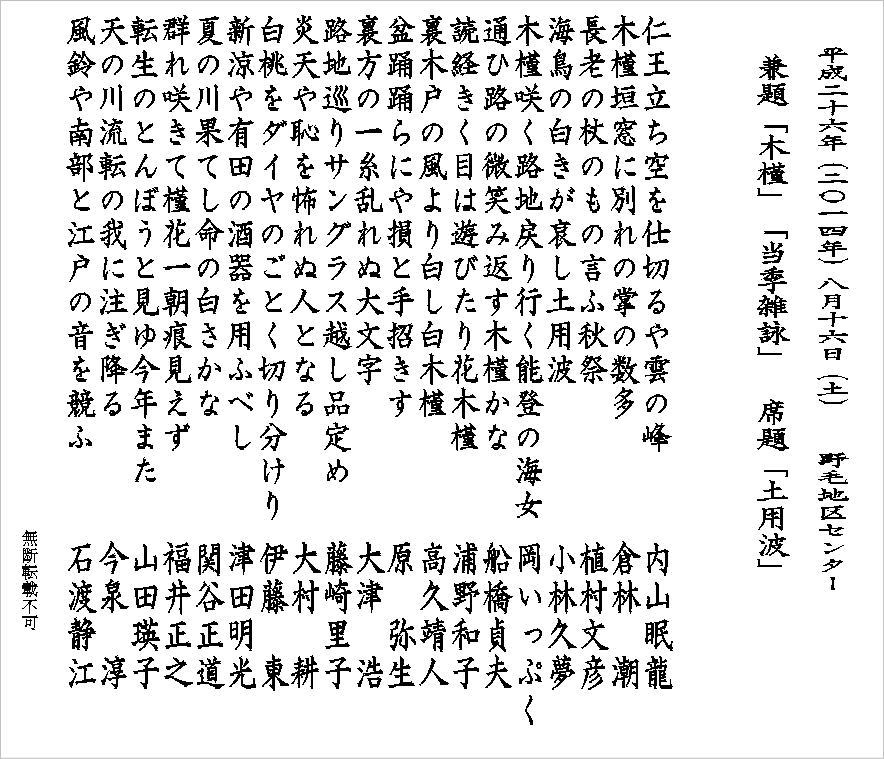 平成二十六年（二〇一四年）八月十六日（土）　野毛地区センター
兼題「木槿」「当季雑詠」　席題「土用波」
仁王立ち空を仕切るや雲の峰　内山眠龍
木槿垣窓に別れの掌の数多　倉林　潮
長老の杖のもの言ふ秋祭　植村文彦
海鳥の白きが哀し土用波　小林久夢
木槿咲く路地戻り行く能登の海女　岡いっぷく
通ひ路の微笑み返す木槿かな　船橋貞夫
読経きく目は遊びたり花木槿　浦野和子
裏木戸の風より白し白木槿　高久靖人
盆踊踊らにや損と手招きす　原　弥生
裏方の一糸乱れぬ大文字　大津　浩
路地巡りサングラス越し品定め　藤崎里子
炎天や恥を怖れぬ人となる　大村　耕
白桃をダイヤのごとく切り分けり　伊藤　東
新涼や有田の酒器を用ふべし　津田明光
夏の川果てし命の白さかな　関谷正道
群れ咲きて槿花一朝痕見えず　福井正之
転生のとんぼうと見ゆ今年また　山田瑛子
天の川流転の我に注ぎ降る　今泉　淳
風鈴や南部と江戸の音を競ふ　石渡静江
無断転載不可